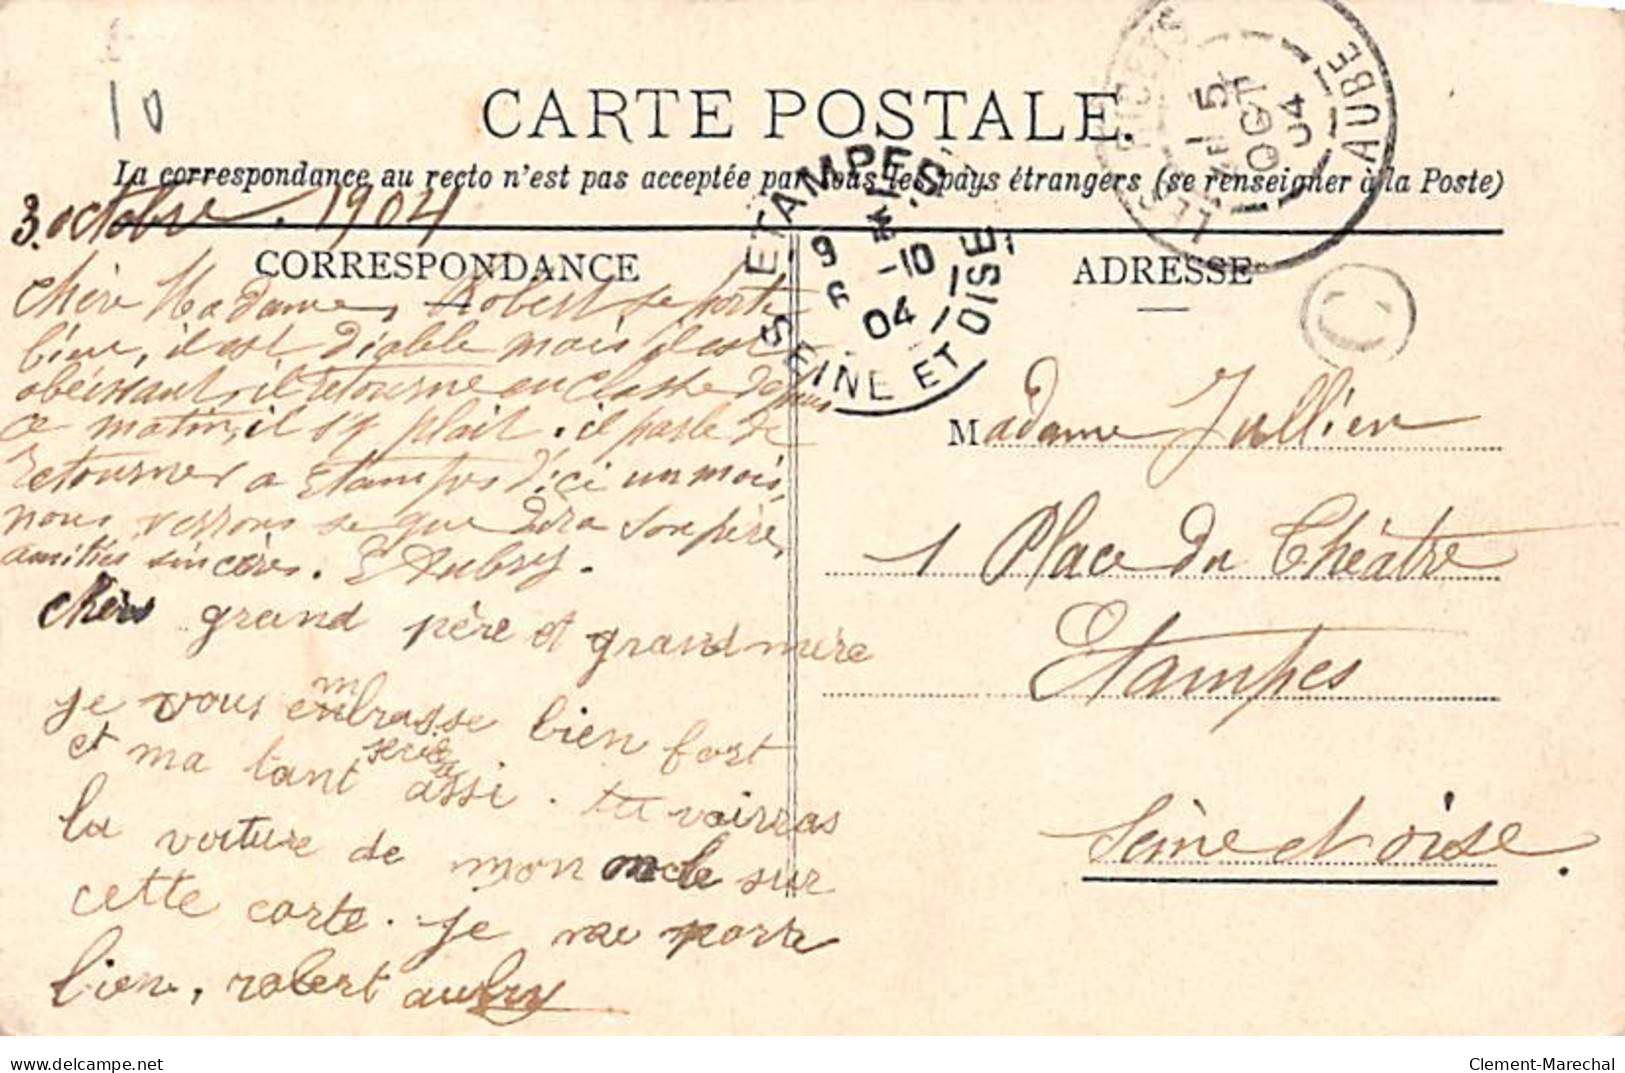 10
CARTE POSTALE.
La correspondance au recto n'est pas acceptée par tous les pays étrangers (se renseigner à la Poste)
3. octobre . 1904
CORRESPONDANCE
chère Madame, Robert se porte
bien, il est diable mais il est
obéissant, il retourne en classe depuis
ce matin, il s'y plait. il parle de
retourner a Etampes d'ici un mois,
nous verrons se que dira son père,
amitiés sincères. E Aubry.
chers grand père et grand mère
je vous embrasse bien fort
et ma tant assi. tu vairras
la voiture de mon oncle sur
cette carte. je me porte
bien, robert aubry
ETAMPES
9 10
04
SEINE ET OISE
LES RICEYS
5
OCT
04
AUBE
ADRESSE
C
Madame Jullien
1 Place du Théâtre
Etampes
Seine et oise.
delcampe.net
Clement-Marechal